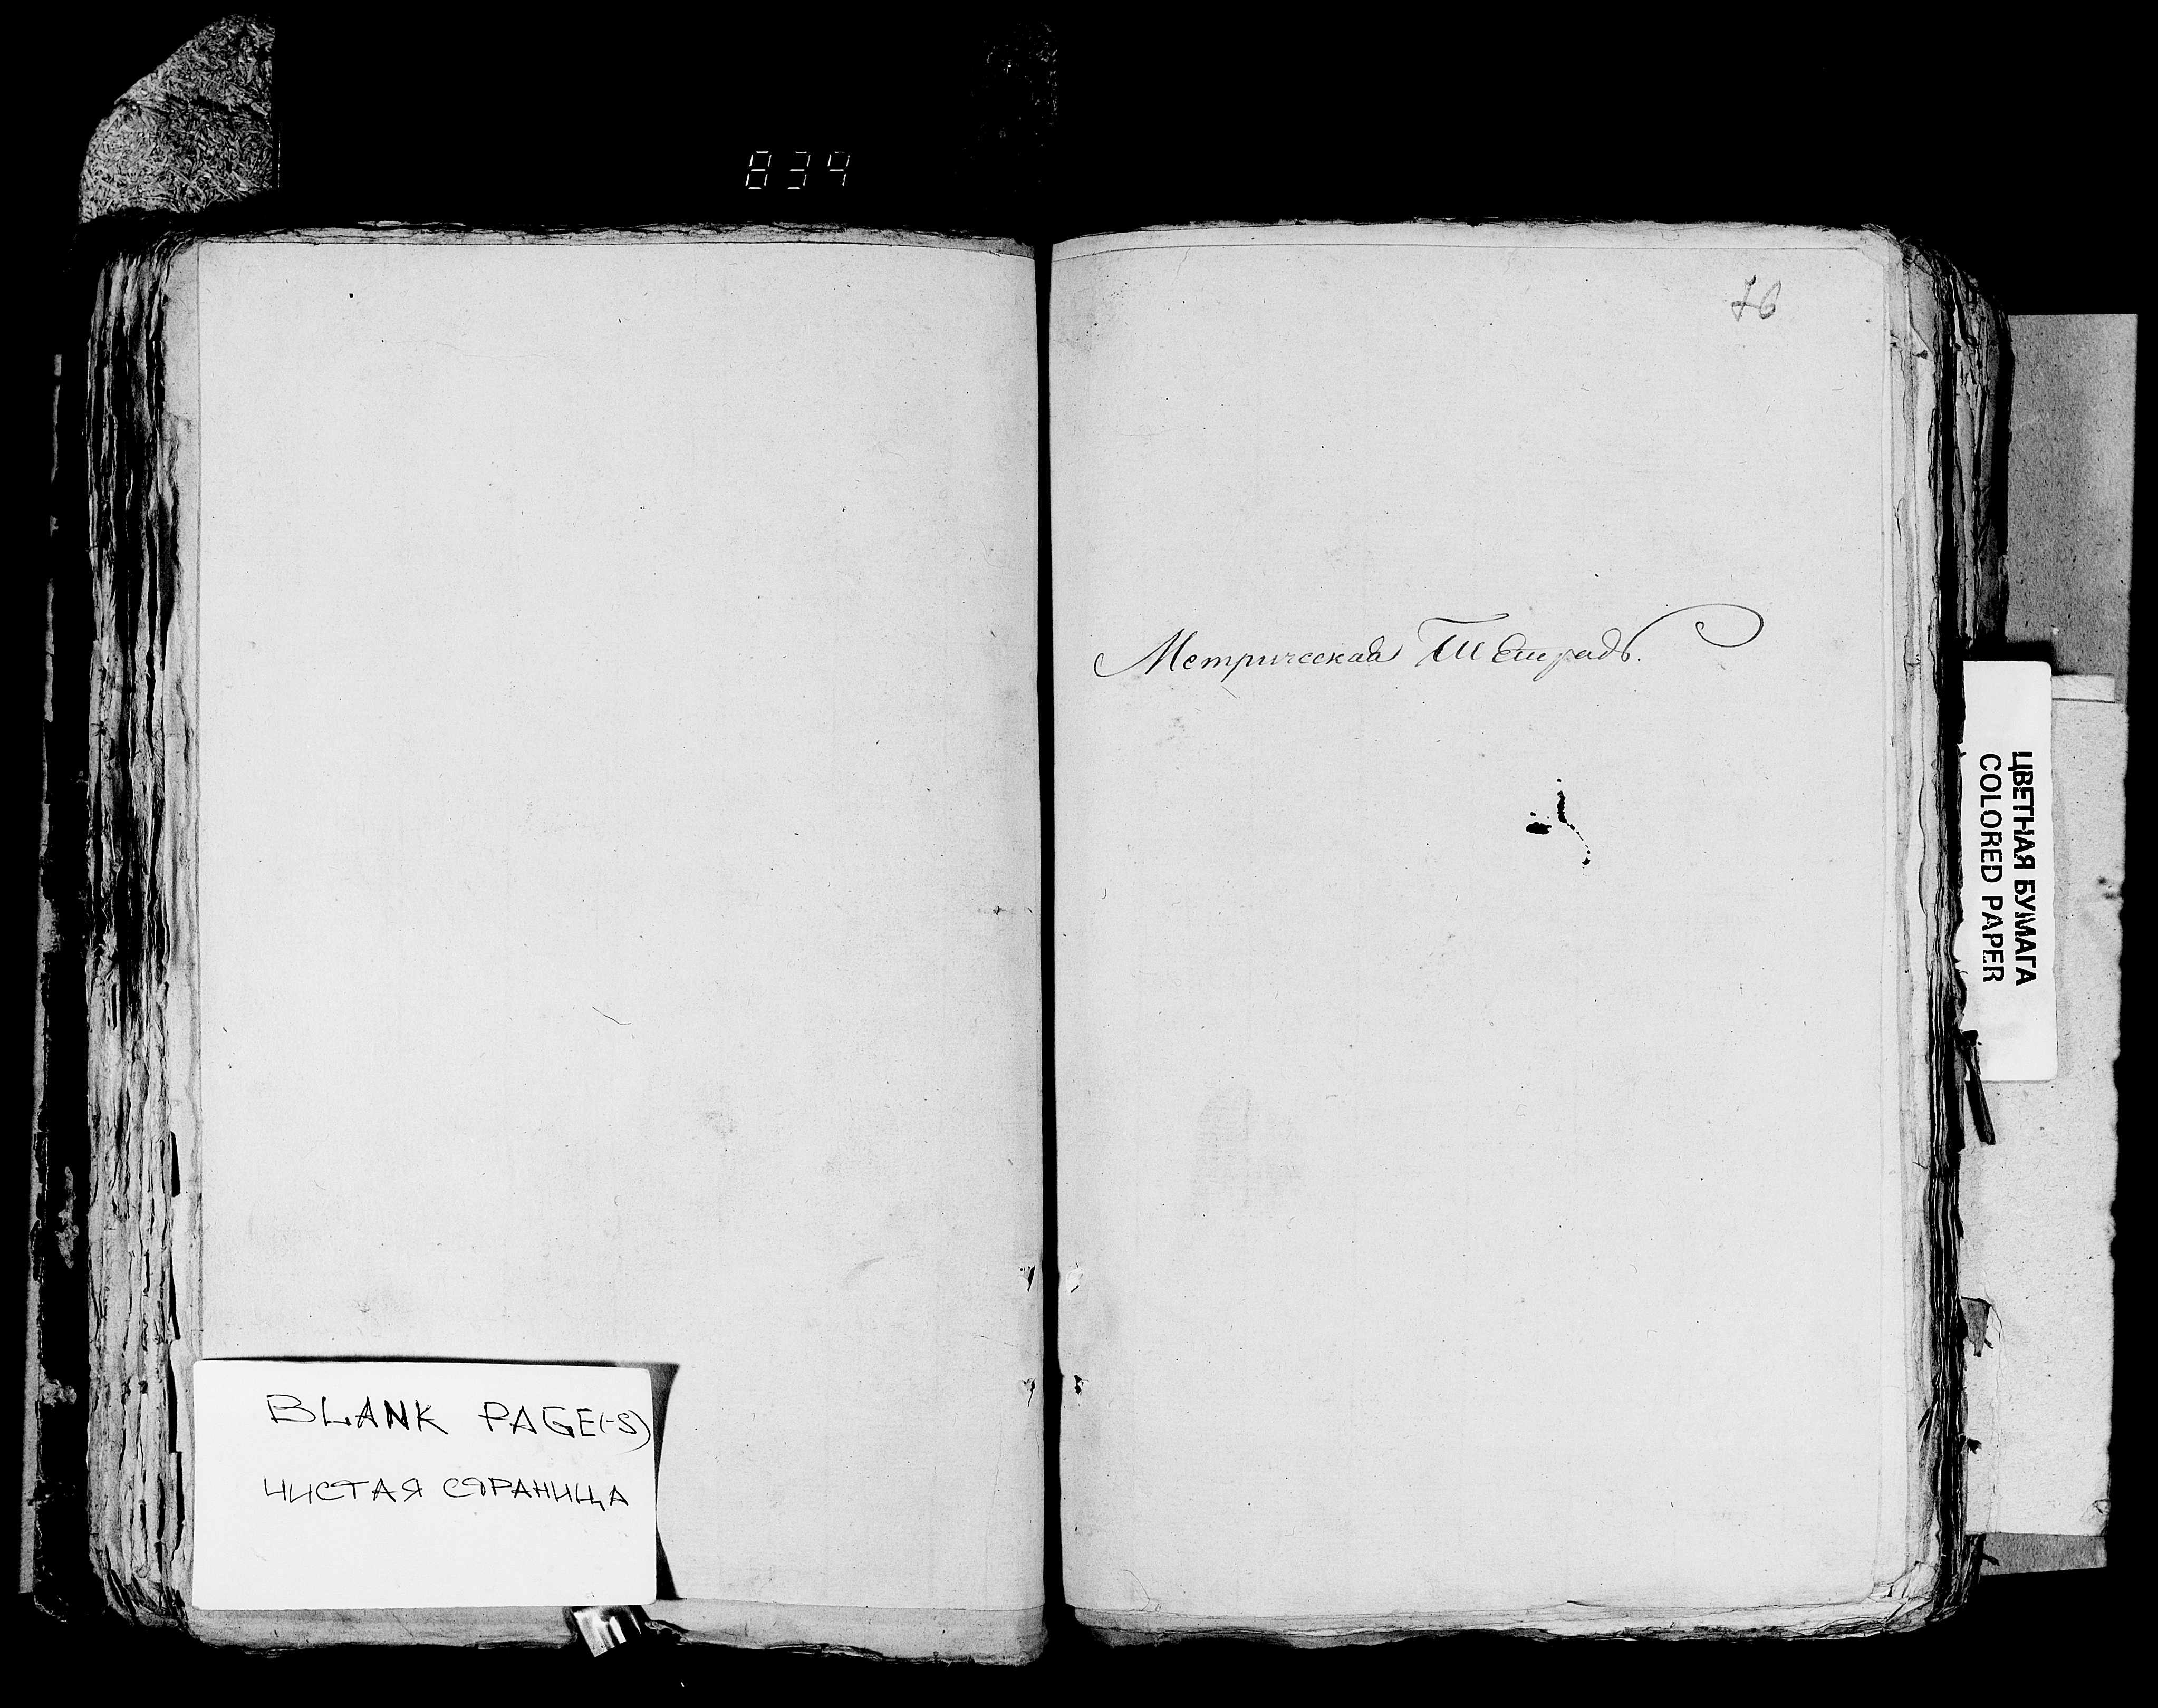 839
76
Метрическая Тетрадь.
ЦВЕТНАЯ БУМАГА
COLORED PAPER
BLANK PAGE(-S)
ЧИСТАЯ СТРАНИЦА